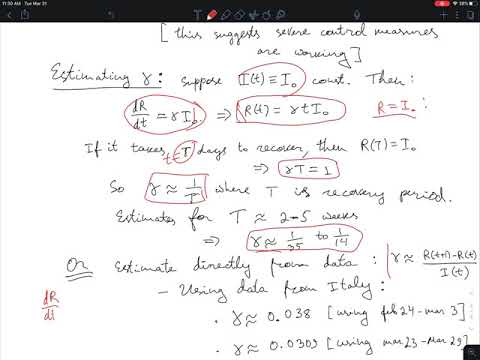 11:30 AM Tue Mar 31
38%
[ this suggests severe control measures
are working]
Estimating γ: suppose I(t) ≡ I₀ const. Then:
dR/dt = γI₀ ⇒ R(t) = γtI₀ R = I₀ :
If it takes T days to recover, then R(T) = I₀
t=T
⇒ γT = 1
So γ ≈ 1/T where T is recovery period.
Estimates for T ≈ 2-5 weeks
⇒ γ ≈ 1/35 to 1/14
Or Estimate directly from data: γ ≈ R(t+1)-R(t)/I(t)
dR/dt
- Using data from Italy:
. γ ≈ 0.038 [using feb 24 - mar 3]
. γ ≈ 0.0309 [using mar. 23 - Mar 29]